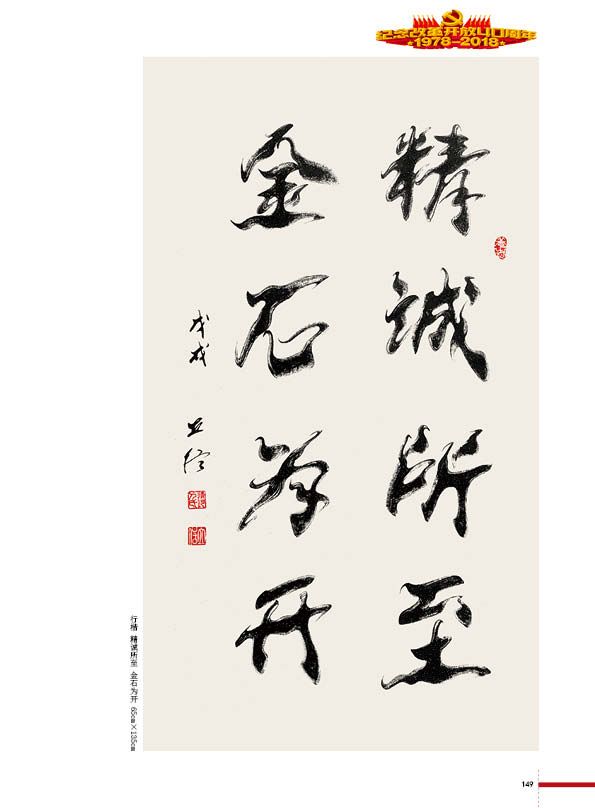 纪念改革开放40周年
1978-2018
精诚所至
金石为开
戊戌
行楷 精诚所至 金石为开 65cm×135cm
149